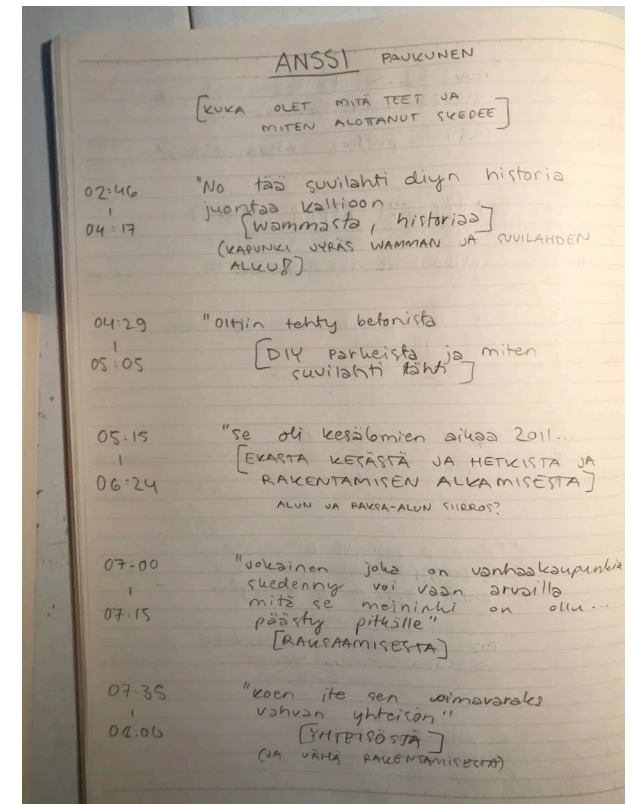 ANSSI PAUKUNEN
[KUKA OLET, MITÄ TEET JA
MITEN ALOTTANUT SKEDEE]
02:46 "No tää suvilahti diyn historia
| juontaa kallioon...
04:17 [wammasta, historiaa]
(KAPUNKI JYRÄS WAMMAN JA SUVILAHDEN
ALKU!]
04:29 "oltiin tehty betonista
| [DIY parkeista ja miten
05:05 suvilahti lähti]
05.15 "se oli kesälomien aikaa 2011...
| [EKASTA KESÄSTÄ JA HETKISTÄ JA
06:24 RAKENTAMISEN ALKAMISESTA]
ALUN JA RAKSA-ALUN SIIRROS?
07-00 "jokainen joka on vanhaakaupunkia
| skedenny voi vaan arvailla
mitä se meininki on ollu...
07.15 päästy pitkälle"
[RAKSAAMISESTA]
07.35 "koen ite sen voimavaraks
| vahvan yhteisön"
08:06 [YHTEISÖSTÄ]
(JA VÄHÄ RAKENTAMISESTA)